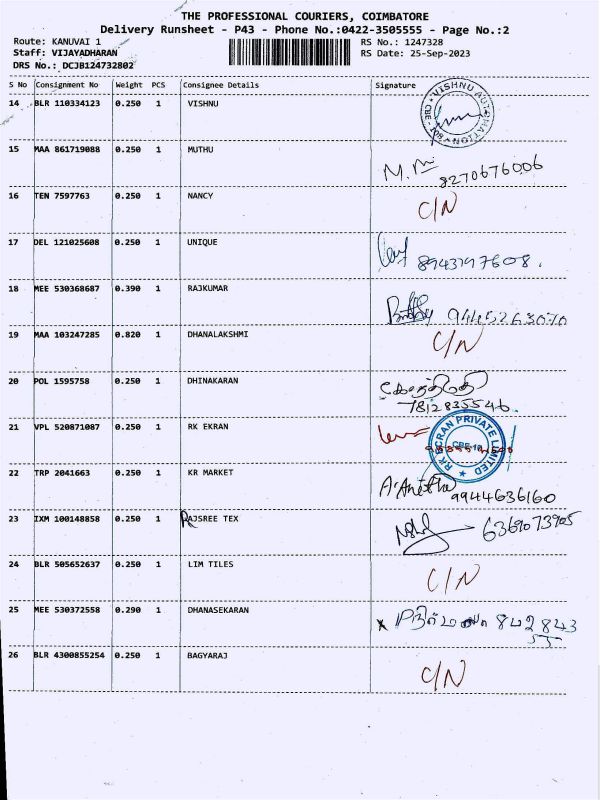 THE PROFESSIONAL COURIERS, COIMBATORE
Delivery Runsheet - P43 - Phone No.:0422-3505555 - Page No.:2
Route: KANUVAI 1 RS No.: 1247328
Staff: VIJAYADHARAN RS Date: 25-Sep-2023
DRS No.: DCJB124732802
S No Consignment No Weight PCS Consignee Details Signature
14 BLR 110334123 0.250 1 VISHNU VISHNU AUTOMATION
15 MAA 861719088 0.250 1 MUTHU 8270676006
16 TEN 7597763 0.250 1 NANCY C/N
17 DEL 121025608 0.250 1 UNIQUE
18 MEE 530368687 0.390 1 RAJKUMAR 9445263070
19 MAA 103247285 0.820 1 DHANALAKSHMI C/N
20 POL 1595758 0.250 1 DHINAKARAN
7812835546.
21 VPL 520871087 0.250 1 RK EKRAN PRIVATE LIMITED
22 TRP 2041663 0.250 1 KR MARKET A.Anitha 9944636160
23 IXM 100148858 0.250 1 RAJSREE TEX 6369073905
24 BLR 505652637 0.250 1 LIM TILES C/N
25 MEE 530372558 0.290 1 DHANASEKARAN
26 BLR 4300855254 0.250 1 BAGYARAJ C/N